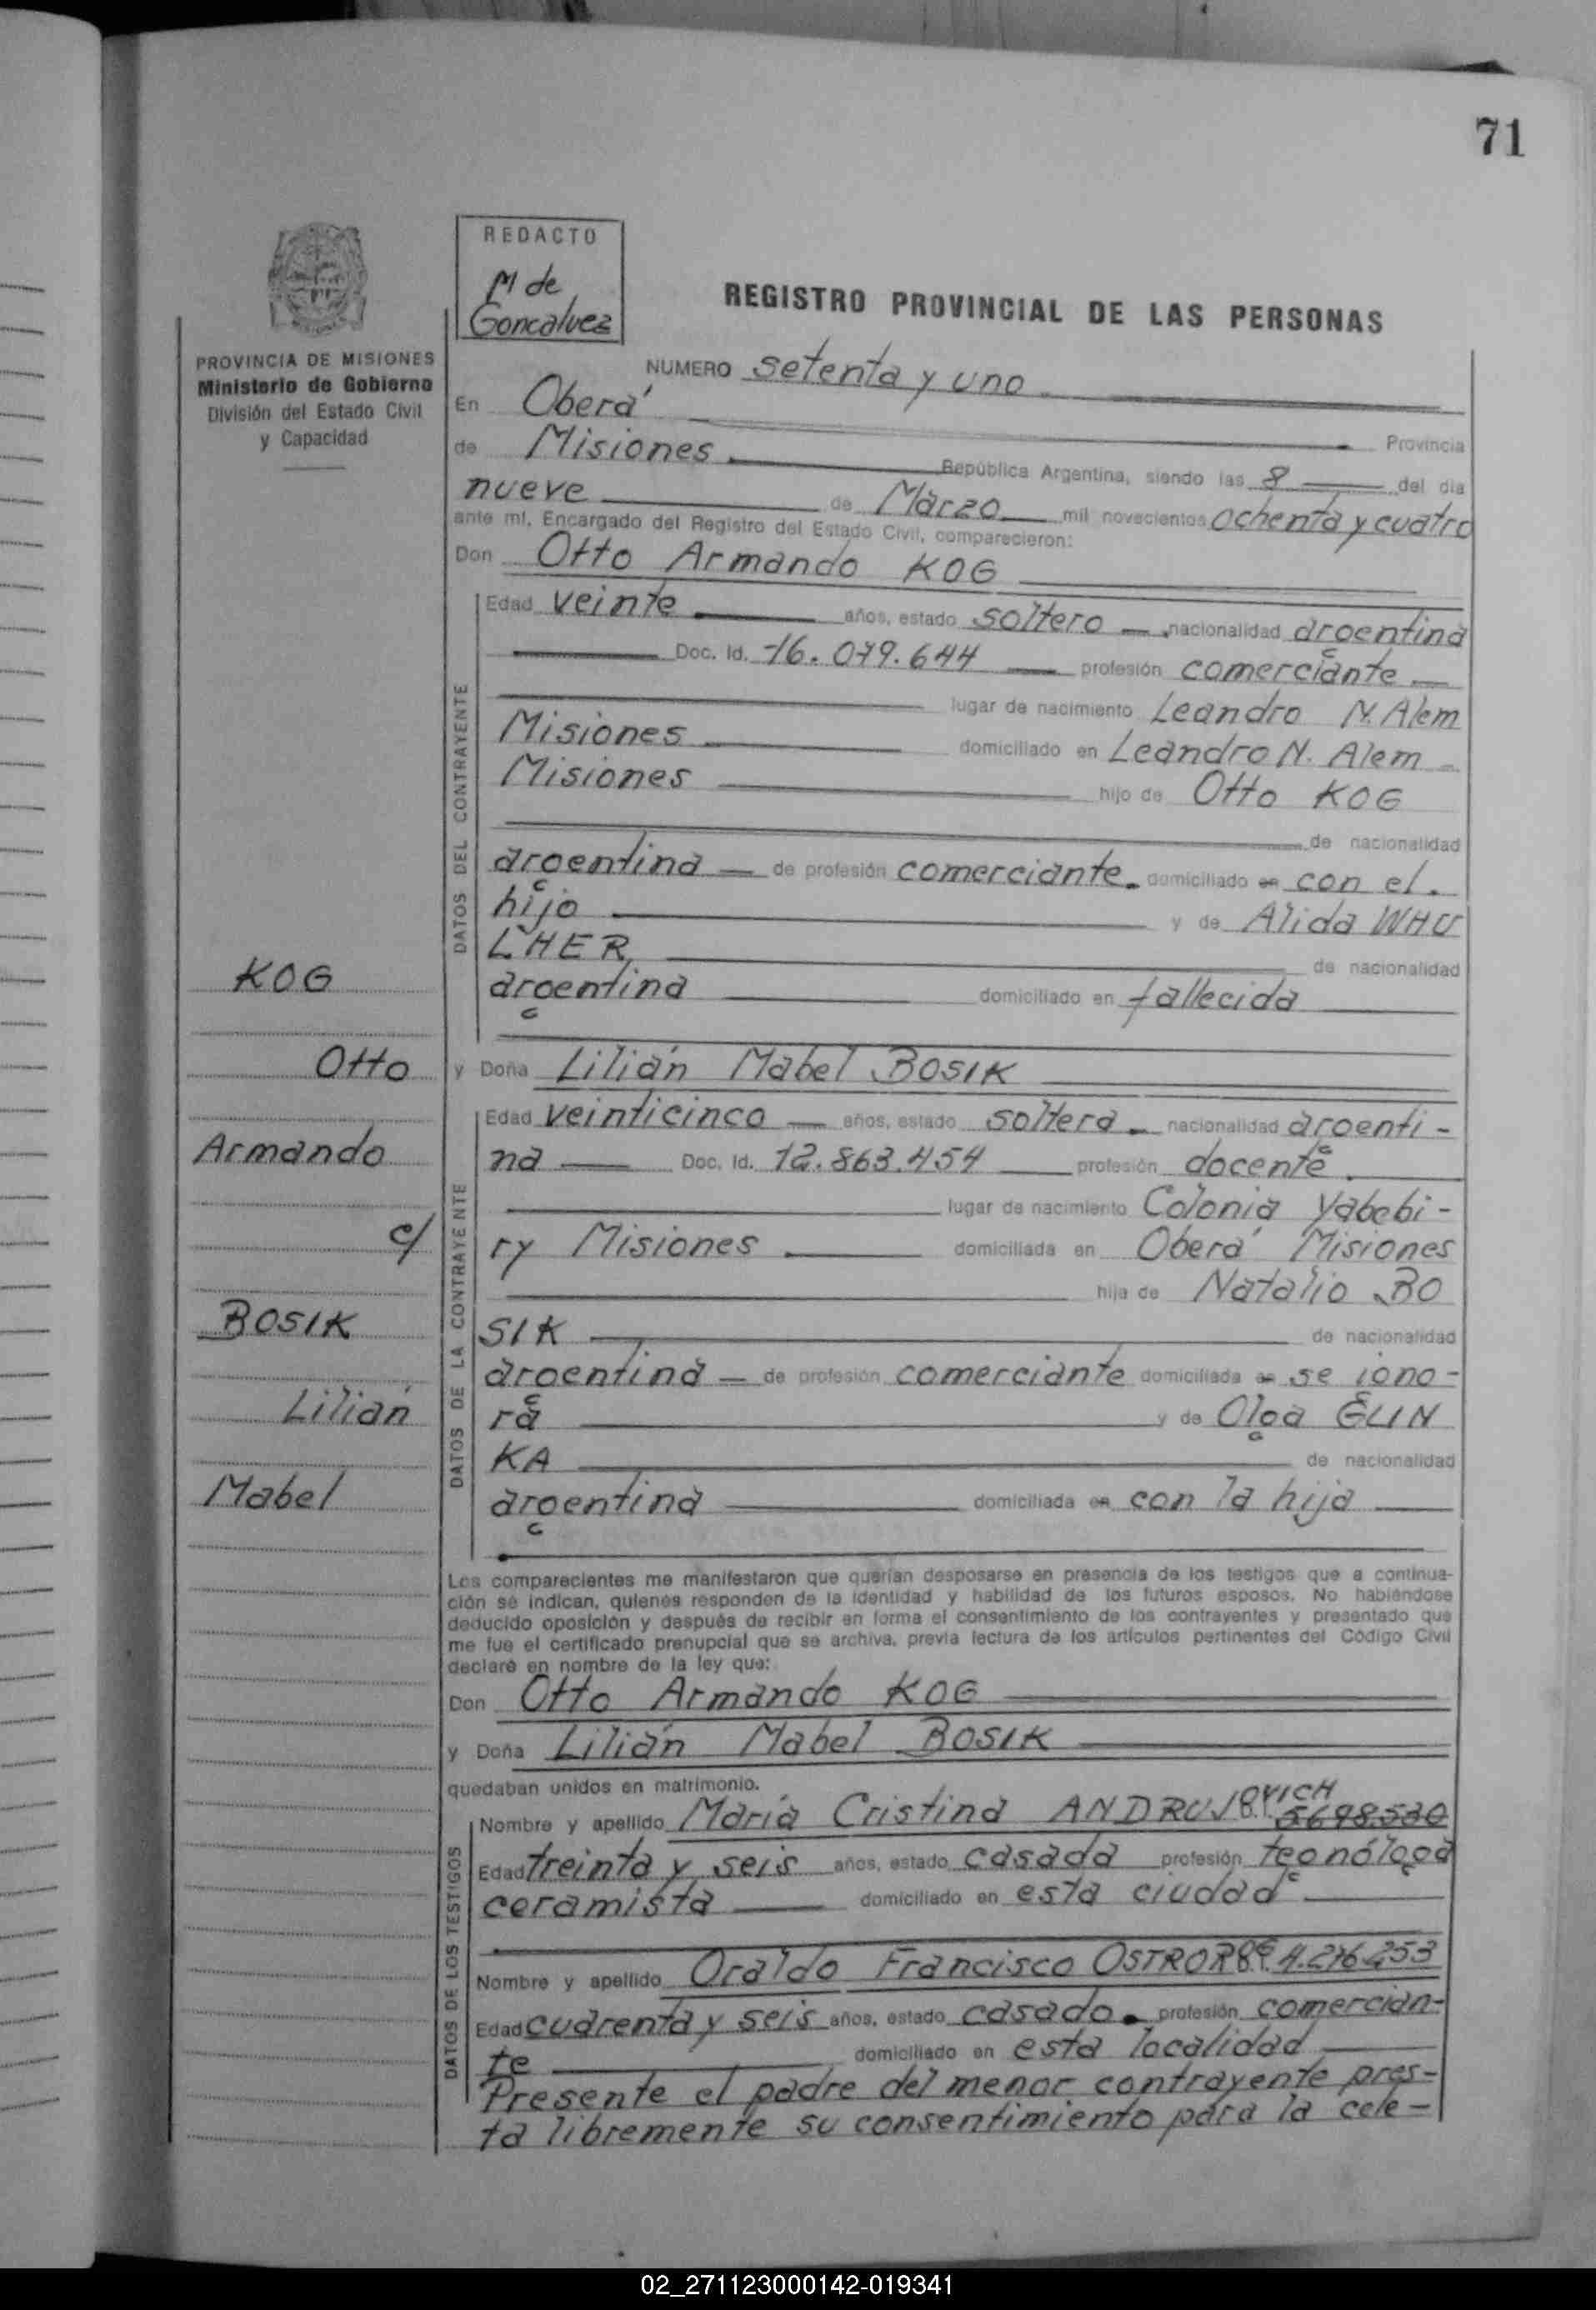 71
REDACTO
M de
Goncalvez
REGISTRO PROVINCIAL DE LAS PERSONAS
PROVINCIA DE MISIONES
Ministerio de Gobierno
División del Estado Civil
y Capacidad
NUMERO setenta y uno
En Oberá
Provincia
de Misiones República Argentina, siendo las 8 del día
nueve de Marzo mil novecientos ochenta y cuatro
ante mí, Encargado del Registro del Estado Civil, comparecieron:
Don Otto Armando KOG
DATOS DEL CONTRAYENTE
Edad veinte años, estado soltero nacionalidad argentina
Doc. Id. 16.079.644 profesión comerciante
lugar de nacimiento Leandro N. Alem
Misiones domiciliado en Leandro N. Alem
Misiones hijo de Otto KOG
de nacionalidad
argentina de profesión comerciante domiciliado en con el
hijo y de Alida WHU
LHER de nacionalidad
argentina domiciliado en fallecida
y Doña Lilián Mabel BOSIK
DATOS DE LA CONTRAYENTE
Edad veinticinco años, estado soltera nacionalidad argenti-
na Doc. Id. 12.863.454 profesión docente
lugar de nacimiento Colonia Yabebi-
ry Misiones domiciliada en Oberá Misiones
hija de Natalio BO
SIK de nacionalidad
argentina de profesión comerciante domiciliada en se igno-
ra y de Olga GLIN
KA de nacionalidad
argentina domiciliada en con la hija
KOG
Otto
Armando
c/
BOSIK
Lilián
Mabel
Los comparecientes me manifestaron que querían desposarse en presencia de los testigos que a continua-
ción se indican, quienes responden de la identidad y habilidad de los futuros esposos. No habiéndose
deducido oposición y después de recibir en forma el consentimiento de los contrayentes y presentado que
me fue el certificado prenupcial que se archiva, previa lectura de los artículos pertinentes del Código Civil
declaré en nombre de la ley que:
Don Otto Armando KOG
y Doña Lilián Mabel BOSIK
quedaban unidos en matrimonio.
DATOS DE LOS TESTIGOS
Nombre y apellido María Cristina ANDRUJOVICH 5698.530
Edad treinta y seis años, estado casada profesión tecnóloga
ceramista domiciliado en esta ciudad
Nombre y apellido Oraldo Francisco 4.276.253
Edad cuarenta y seis años, estado casado profesión comercian-
te domiciliado en esta localidad
Presente el padre del menor contrayente pres-
ta libremente su consentimiento para la cele-
02_271123000142-019341